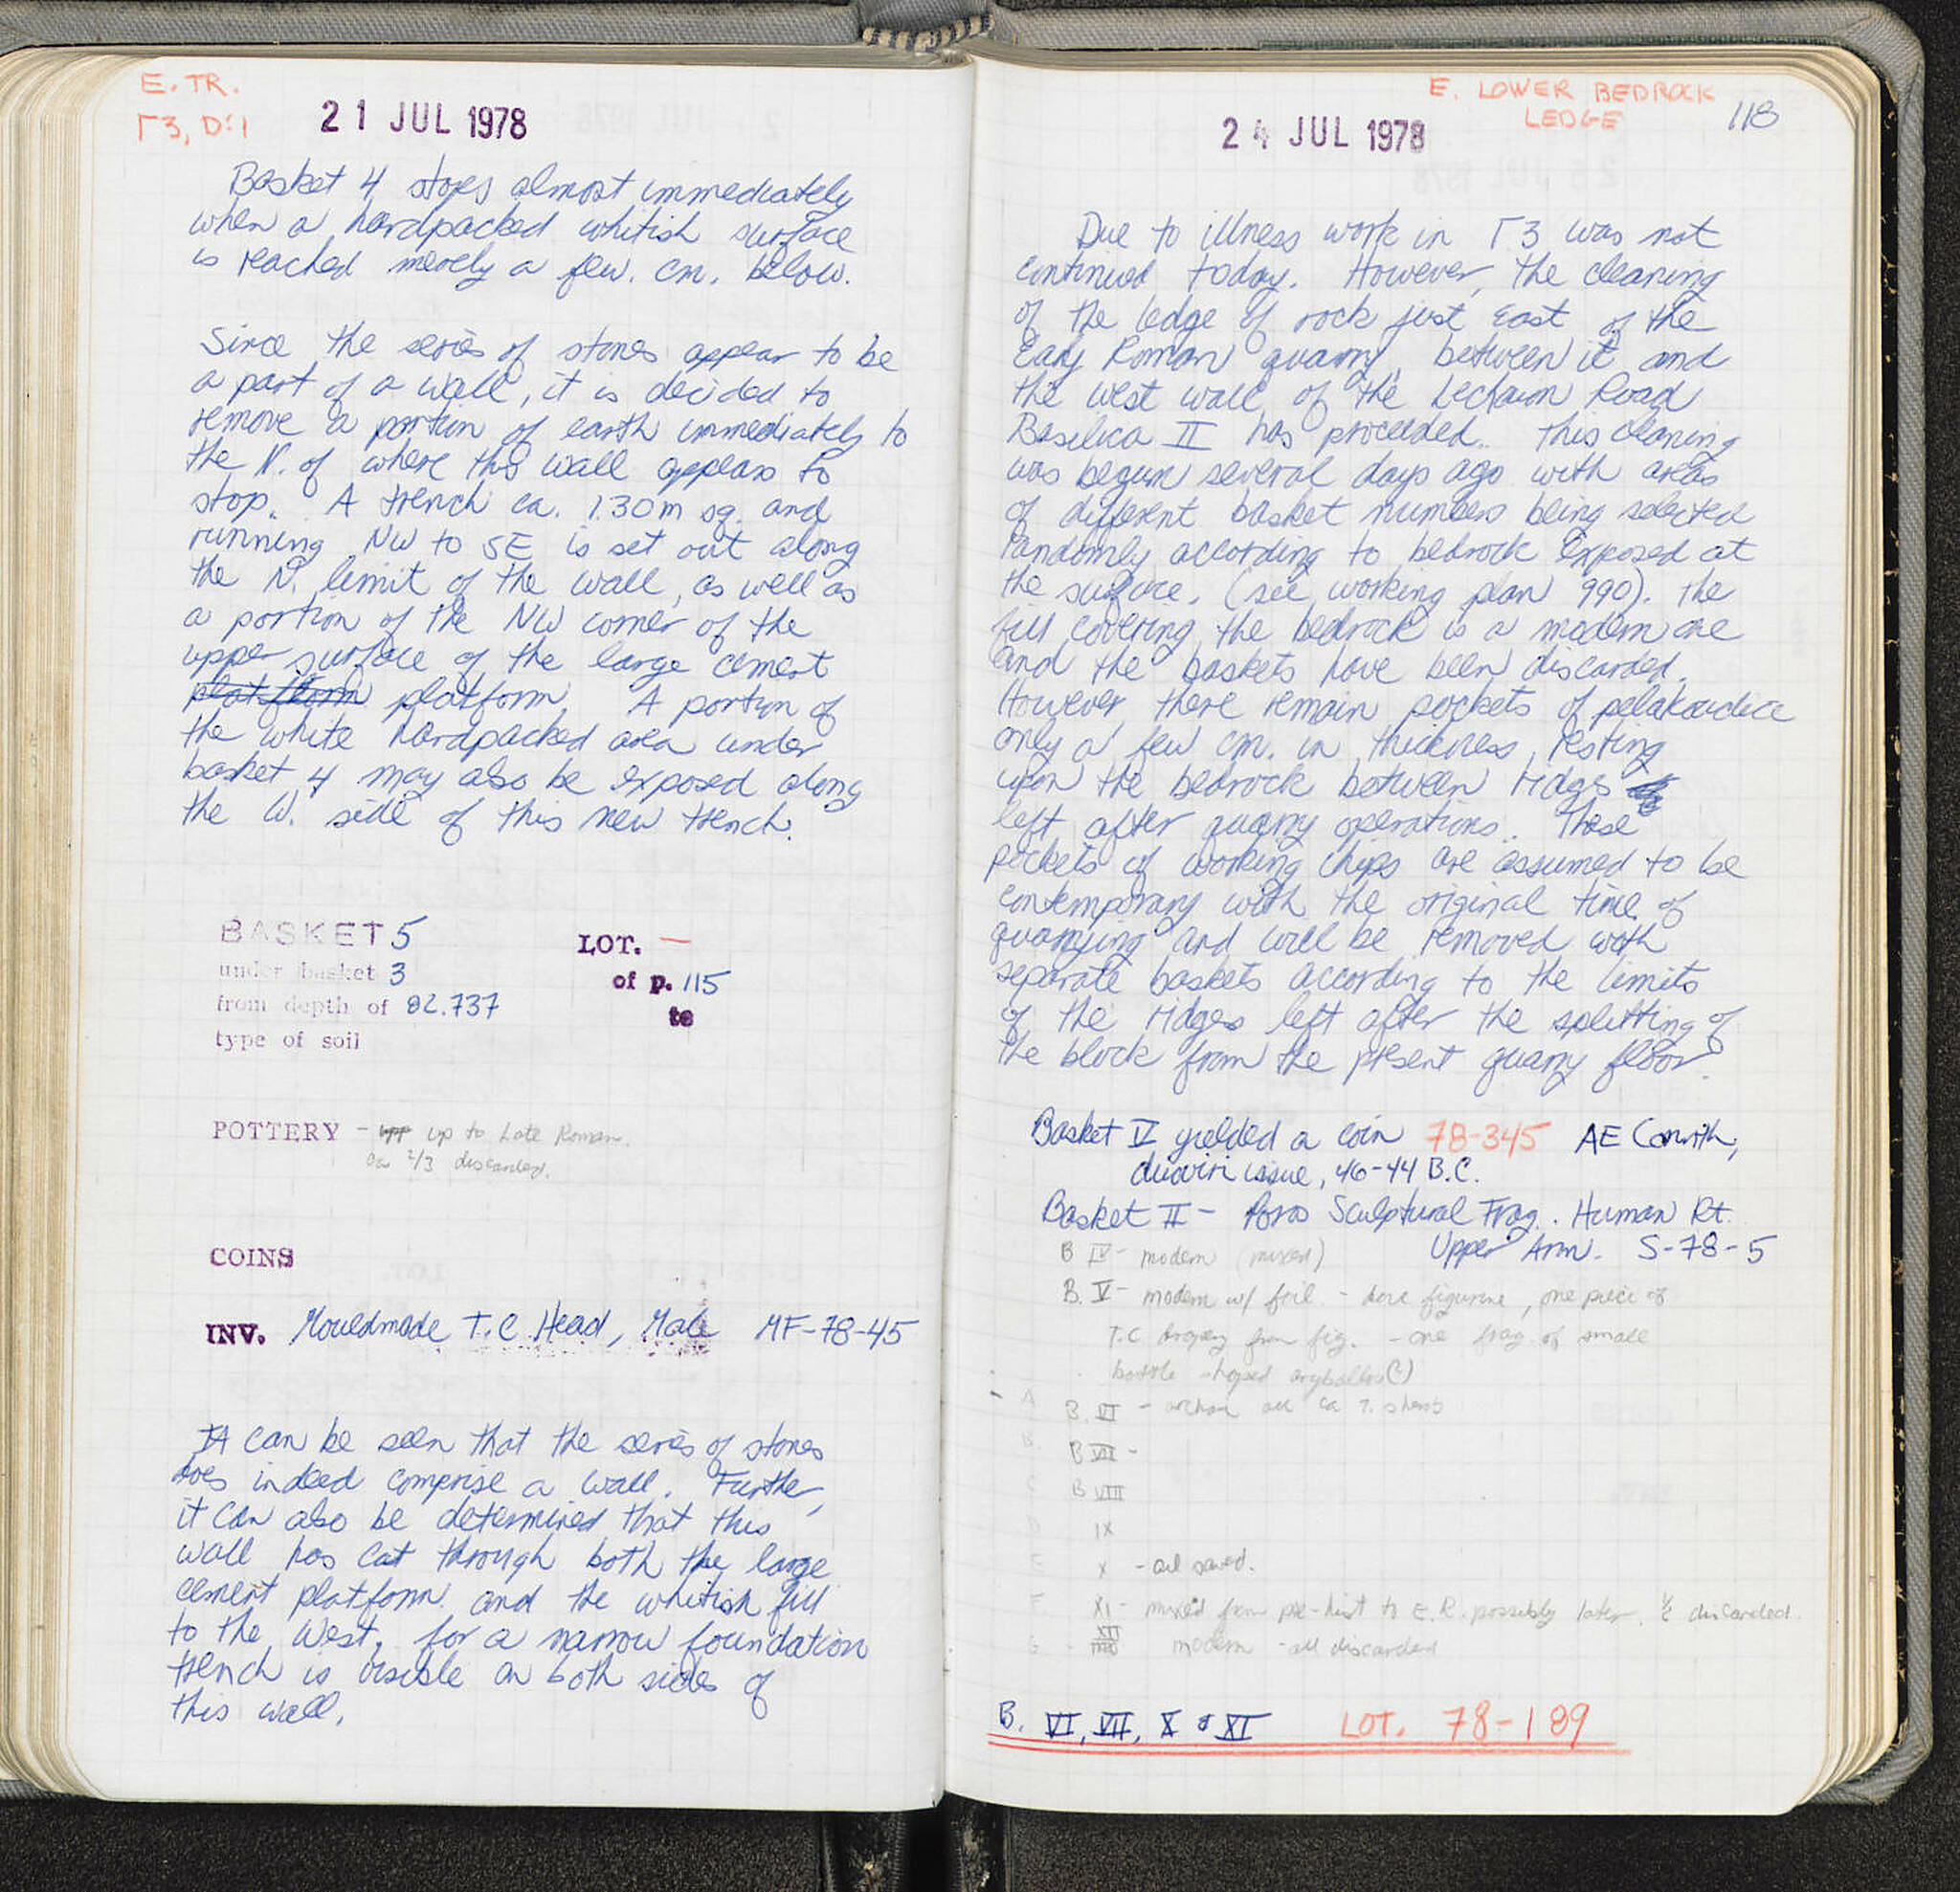 E. TR.
Γ3, D:1
21 JUL 1978
Basket 4 stops almost immediately
when a hardpacked whitish surface
is reached merely a few. cm. below.
Since the series of stones appear to be
a part of a wall, it is decided to
remove a portion of earth immediately to
the N. of where this wall appears to
stop. A trench ca. 1.30m sq. and
running NW to SE is set out along
the N. limit of the wall, as well as
a portion of the NW corner of the
upper surface of the large cement
platform platform. A portion of
the white hardpacked area under
basket 4 may also be exposed along
the W. side of this new trench.
BASKET 5
under basket 3
from depth of 82.737
type of soil
LOT. —
of p. 115
te
POTTERY - up to Late Roman.
ca 2/3 discarded.
COINS
INV. Mouldmade T.C. Head, Male MF-78-45
It can be seen that the series of stones
does indeed comprise a wall. Further,
it can also be determined that this
wall has cut through both the large
cement platform and the whitish fill
to the West, for a narrow foundation
trench is visible on both sides of
this wall.
E. LOWER BEDROCK
LEDGE
118
24 JUL 1978
Due to illness work in Γ3 was not
continued today. However, the cleaning
of the ledge of rock just east of the
Early Roman quarry, between it and
the west wall of the Lechaion Road
Basilica II has proceeded. This cleaning
was begun several days ago with areas
of different basket numbers being selected
randomly according to bedrock exposed at
the surface. (see working plan 990). The
fill covering the bedrock is a modern one
and the baskets have been discarded.
However there remain pockets of pelakoudia
only a few cm. in thickness, resting
upon the bedrock between ridges
left after quarry operations. These
pockets of working chips are assumed to be
contemporary with the original time of
quarrying and will be removed with
separate baskets according to the limits
of the ridges left after the splitting of
the block from the present quarry floor.
Basket V yielded a coin 78-345 AE Corinth,
duoviri issue, 46-44 B.C.
Basket II - Poros Sculptural Frag. Human Rt.
Upper Arm. S-78-5
B IV - modern (mixed)
B. V - modern w/ foil - figurine, one piece of
T.C drapery from fig. - one frag of small
bottle shaped aryballos(?)
A B. VI - ca 7. sherds
B B VII -
C B VIII
D IX
E X - all saved.
F XI - mixed from pre-hist to E.R. possibly later. ½ discarded.
G - XII modern - all discarded
B. VI, VII, X & XI LOT. 78-189